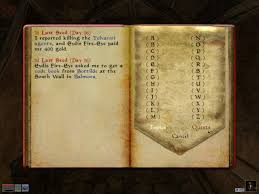 21 Last Seed (Day 16)
I reported killing the Telvanni
agents, and Eydis Fire-Eye paid
me 400 gold.
21 Last Seed (Day 16)
Eydis Fire-Eye asked me to get a
code book from Sottilde at the
South Wall in Balmora.
( A ) ( N )
( B ) ( O )
( C ) ( P )
( D ) ( Q )
( E ) ( R )
( F ) ( S )
( G ) ( T )
( H ) ( U )
( I ) ( V )
( J ) ( W )
( K ) ( X )
( L ) ( Y )
( M ) ( Z )
Topics Quests
Cancel